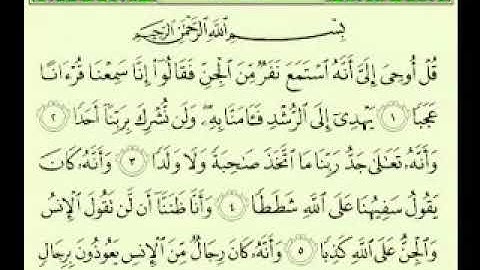 بِسْمِ اللَّهِ الرَّحْمَٰنِ الرَّحِيمِ
قُلْ أُوحِىَ إِلَىَّ أَنَّهُ ٱسْتَمَعَ نَفَرٌ مِّنَ ٱلْجِنِّ فَقَالُوٓا۟ إِنَّا سَمِعْنَا قُرْءَانًا
عَجَبًا ١ يَهْدِىٓ إِلَى ٱلرُّشْدِ فَـَٔامَنَّا بِهِۦ وَلَن نُّشْرِكَ بِرَبِّنَآ أَحَدًا ٢
وَأَنَّهُۥ تَعَـٰلَىٰ جَدُّ رَبِّنَا مَا ٱتَّخَذَ صَـٰحِبَةً وَلَا وَلَدًا ٣ وَأَنَّهُۥ كَانَ
يَقُولُ سَفِيهُنَا عَلَى ٱللَّهِ شَطَطًا ٤ وَأَنَّا ظَنَنَّآ أَن لَّن نَقُولَ ٱلْإِنسُ
وَٱلْجِنُّ عَلَى ٱللَّهِ كَذِبًا ٥ وَأَنَّهُۥ كَانَ رِجَالٌ مِّنَ ٱلْإِنسِ يَعُوذُونَ بِرِجَالٍ